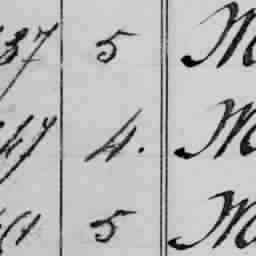 37 5 M
47 4. M
61 5 M